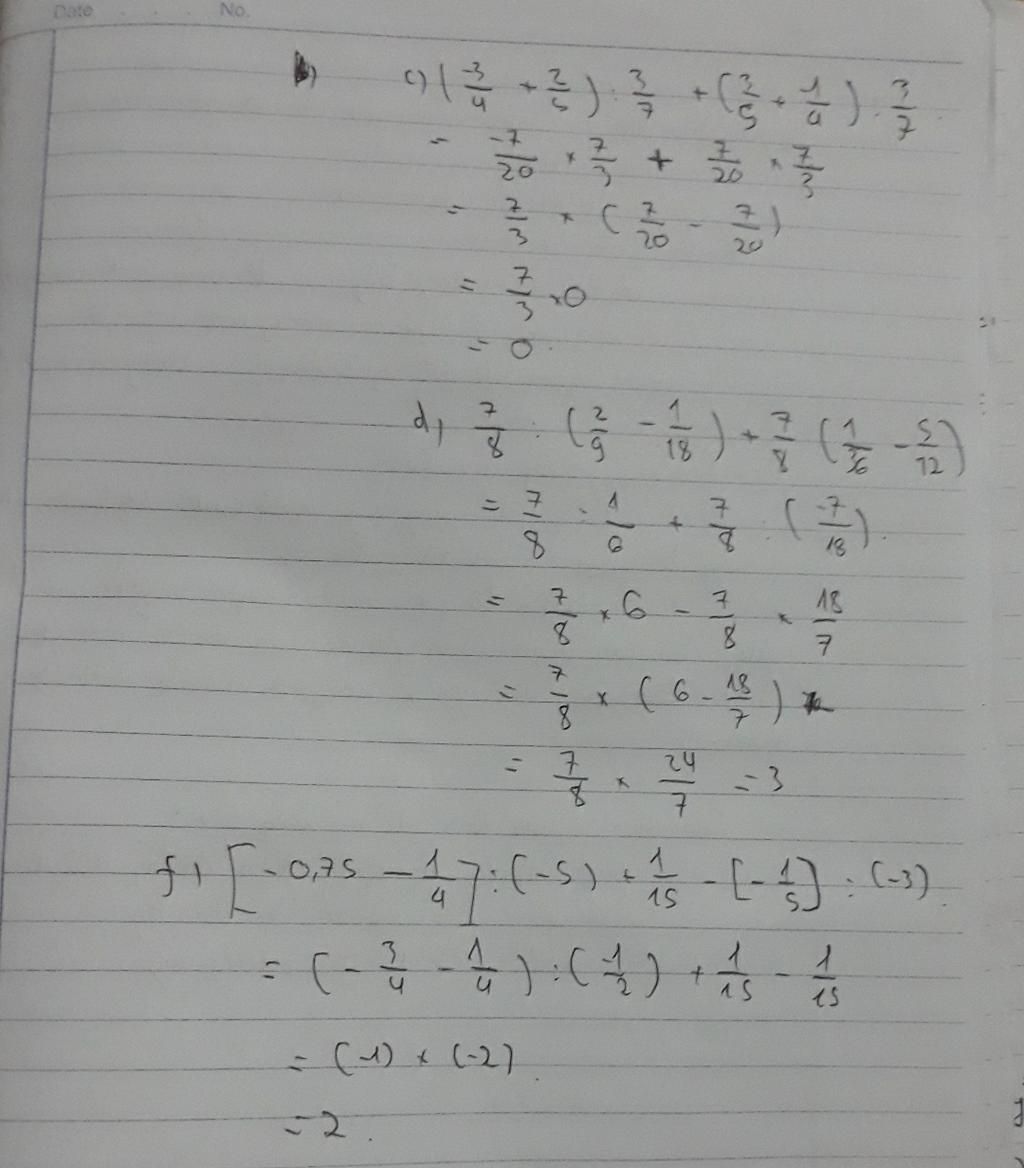 Date No.
b) c) (-3/4 + 2/5) : 3/7 + (3/5 + 1/4) : 3/7
= -7/20 × 7/3 + 7/20 × 7/3
= 7/3 × (7/20 - 7/20)
= 7/3 × 0
= 0.
d, 7/8 : (2/9 - 1/18) + 7/8 (1/36 - 5/12)
= 7/8 : 1/6 + 7/8 : (-7/18).
= 7/8 × 6 - 7/8 × 18/7
= 7/8 × (6 - 18/7)
= 7/8 × 24/7 = 3
f) [-0,75 - 1/4] : (-5) + 1/15 - [-1/5] : (-3).
= (-3/4 - 1/4) : (-1/2) + 1/15 - 1/15
= (-1) × (-2).
= 2.